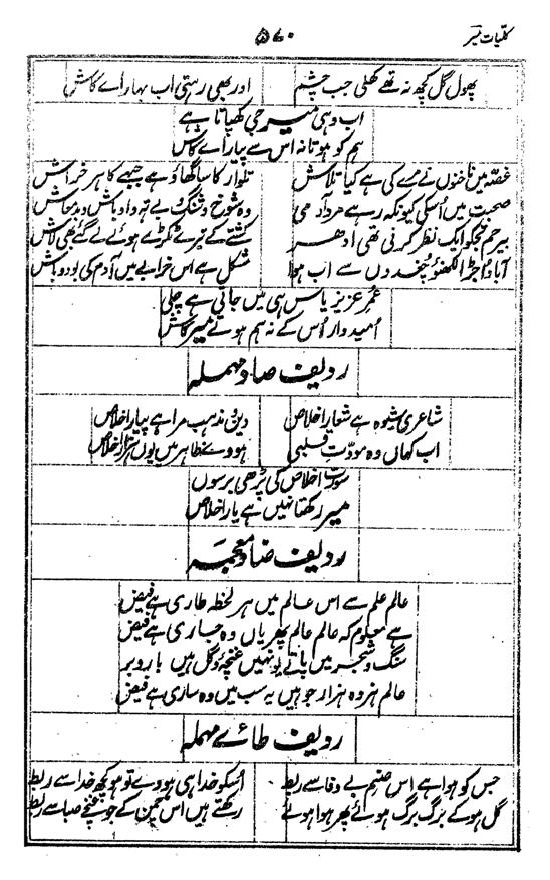 کلیات میر
۵۶۰
پھول گل کچھ نہ تھے کھلی جب چشم اور بھی رہتی اب بہار اے کاش
اب وہی میر جی کھپاتا ہے
ہم کو ہوتا نہ اس سے پیار اے کاش
غصہ میں ناخنوں نے مرے کی ہے کیا تلاش تلوار کا سا گھاؤ ہے جبہے کا ہر خراش
صحبت میں اسکی کیونکہ رہے مرد آدمی وہ شوخ و شنگ و بے تہ و اوباش و بدمعاش
بیرحم تجکو ایک نظر کرنی تھی ادھر کشتے کے تیرے ٹکڑے ہوئے لے گئے بھی لاش
آباد اجڑا لکھنؤ چغدوں سے اب ہوا مشکل ہے اس خرابے میں آدم کی بود و باش
عمر عزیز یاس ہی میں جاتی ہے چلی
امیدوار اس کے نہ ہم ہوتے میر کاش
ردیف صاد مہملہ
شاعری شیوہ ہے شعار اخلاص دین و مذہب مرا ہے پیار اخلاص
اب کہاں وہ مودت قلبی ہووے ظاہر میں یوں ہزار اخلاص
سورت اخلاص کی پڑھی برسوں
میر رکھتا نہیں ہے یار اخلاص
ردیف ضاد معجمہ
عالم علم سے اس عالم میں ہر لحظہ طاری ہے فیض
ہے معلوم کہ عالم عالم پھر یاں وہ جاری ہے فیض
سنگ و شجر میں پاتے یو نہیں غنچہ و گل ہیں بار و بر
عالم ہژدہ ہزار جو ہیں یہ سب میں وہ ساری ہے فیض
ردیف طائے مہملہ
جس کو ہوا ہے اس صنم بے وفا سے ربط اسکو خدا ہی ہووے تو ہو کچھ خدا سے ربط
گل ہو کے برگ برگ ہوئے پھر ہوا ہوئے رکھتے ہیں اس چمن کے جو غنچے صبا سے ربط